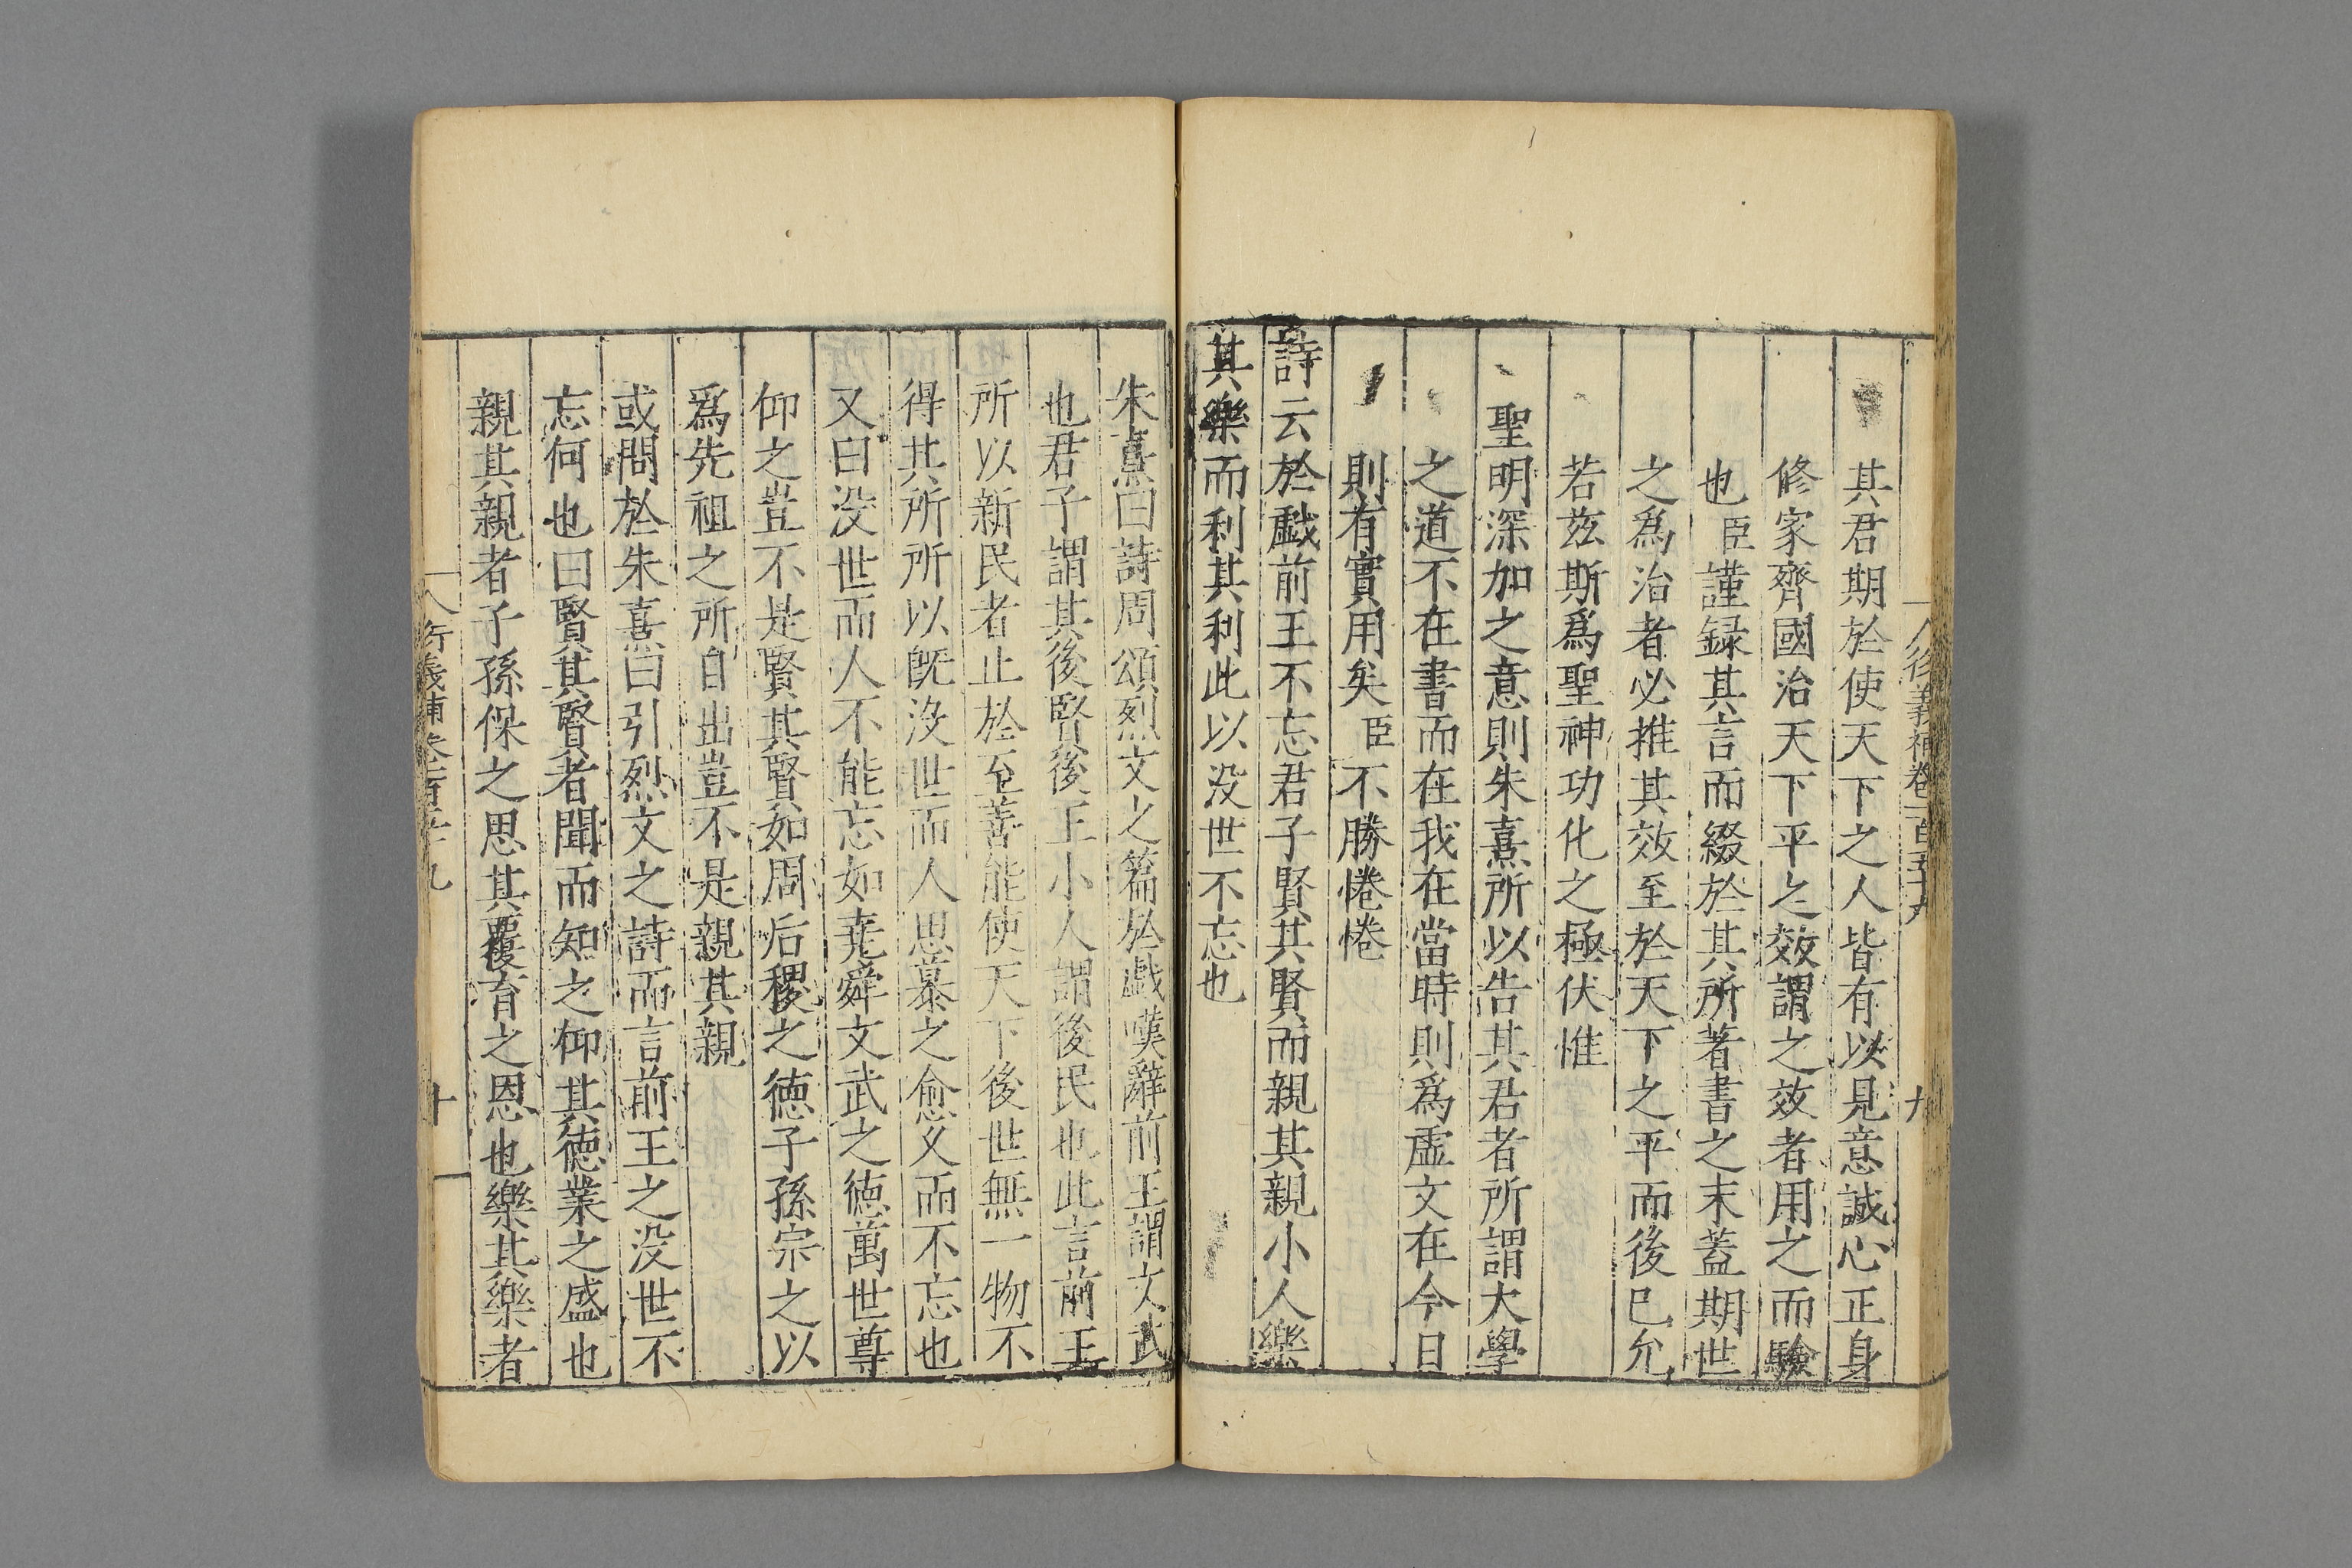 其君期於使天下之人皆有以見意誠心正身
修家齊國治天下平之效謂之效者用之而驗
也臣謹録其言而綴於其所著書之末蓋期世
之爲治者必推其效至於天下之平而後已允
若茲斯爲聖神功化之極伏惟
聖明深加之意則朱熹所以告其君者所謂大學
之道不在書而在我在當時則爲虛文在今日
則有實用矣臣不勝惓惓
詩云於戱前王不忘君子賢其賢而親其親小人樂
其樂而利其利此以没世不忘也
朱熹曰詩周頌烈文之篇於戱嘆辭前王謂文武
也君子謂其後賢後王小人謂後民也此言前王
所以新民者止於至善能使天下後世無一物不
得其所所以旣没世而人思慕之愈乆而不忘也
又曰没世而人不能忘如尭舜文武之德萬世尊
仰之豈不是賢其賢如周后稷之德子孫宗之以
爲先祖之所自出豈不是親其親
或問於朱熹曰引烈文之詩而言前王之没世不
忘何也曰賢其賢者聞而知之仰其德業之盛也
親其親者子孫保之思其覆育之恩也樂其樂者
義補卷百五十九
十